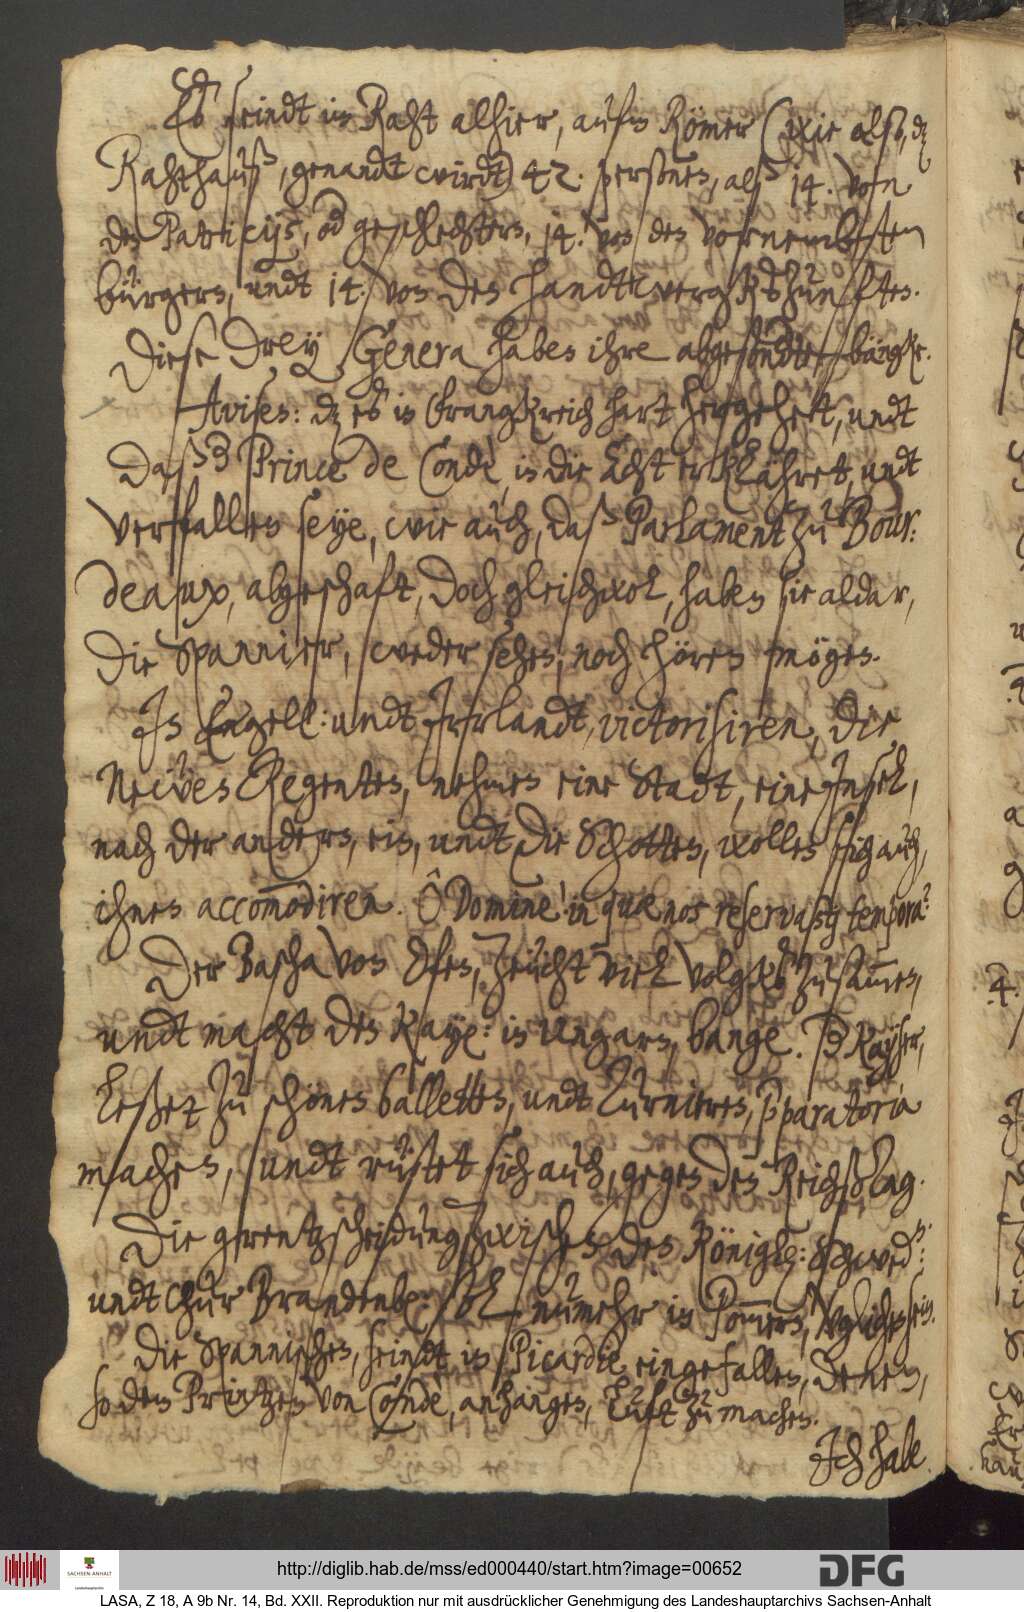 Es seindt im Raht alhier, aufm Römer (wie also, dz
Rahthauß, genandt wirdt) 42. personen, alß 14. von
den Patricijs, od geschlechtern, 14. von den vornembsten
bürgern, undt 14. von den handtwergksZünften.
Diese Drey Genera haben ihre abgesondte bängke.
Avisen: dz es in Frangkreich hart hergehett, undt
Daß d Prince de Condè, in die Acht erklähret, undt
verfallen seye, wie auch, daß Parlament zu Bour:
deaux, abgeschaft, Doch gleichwol, haben sie aldar,
die Spannier, weder sehen, noch hören mögen.
In Engell: undt Irrlandt, victorisiren, die
Neẅen Regenten, nehmen eine Stadt, eine Insel,
nach der andern, ein, undt die Schotten, wollen sich auch,
ihnen accom̄odiren. Ô Dominé in quæ nos reservasti tempora?
Der Bascha von Ofen, zeücht viel volgks zusam̄en,
undt macht den Kaye: in Ungarn, bange. D Kayser,
Leßet zu schönen balletten, undt Turnieren, pparatoria
machen, undt rüstet sich auch, gegen den ReichßTag.
Die grentzscheidung zwischen den Königl: Schwed:
undt Chur Brandenb: sol numehr in Pom̄ern, vglichen sein.
Die Spannischen, seindt in Picardie eingefallen, denen,
so dem Printzen von Conde, anhangen, Luft zu machen.
Ich habe
http://diglib.hab.de/mss/ed000440/start.htm?image=00652
SACHSEN-ANHALT
DFG
LASA, Z 18, A 9b Nr. 14, Bd. XXII. Reproduktion nur mit ausdrücklicher Genehmigung des Landeshauptarchivs Sachsen-Anhalt